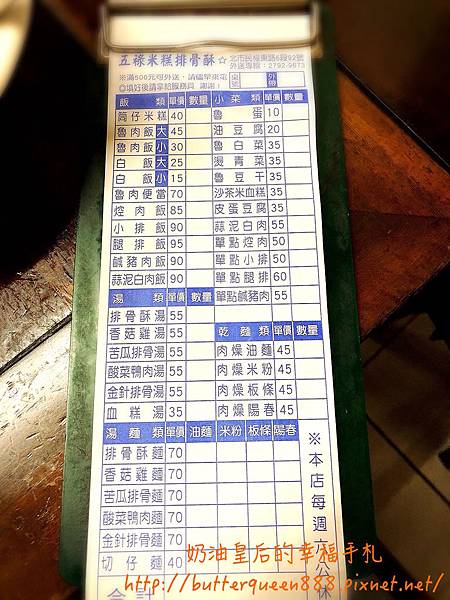 五祿米糕排骨酥☆
北市民權東路6段92號
外送專線：2792-9873
※滿500元可外送，請儘早來電
◎填好後請拿給服務員 謝謝！
桌號
外帶
飯類 單價 數量
筒仔米糕 40
魯肉飯 大 45
魯肉飯 小 30
白飯 大 25
白飯 小 15
魯肉便當 70
焢肉飯 85
小排飯 90
腿排飯 95
鹹豬肉飯 90
蒜泥白肉飯 90
小菜類 單價 數量
魯蛋 10
油豆腐 20
魯白菜 35
燙青菜 35
魯豆干 35
沙茶米血糕 35
皮蛋豆腐 35
蒜泥白肉 55
單點焢肉 50
單點小排 50
單點腿排 60
單點鹹豬肉 55
湯類 單價 數量
排骨酥湯 55
香菇雞湯 55
苦瓜排骨湯 55
酸菜鴨肉湯 55
金針排骨湯 55
血糕湯 35
乾麵類 單價 數量
肉燥油麵 45
肉燥米粉 45
肉燥板條 45
肉燥陽春 45
湯麵類 單價 油麵 米粉 板條 陽春
排骨酥麵 70
香菇雞麵 70
苦瓜排骨麵 70
酸菜鴨肉麵 70
金針排骨麵 70
切仔麵 40
合計
※本店每週六公休
奶油皇后的幸福手札
http://butterqueen888.pixnet.net/